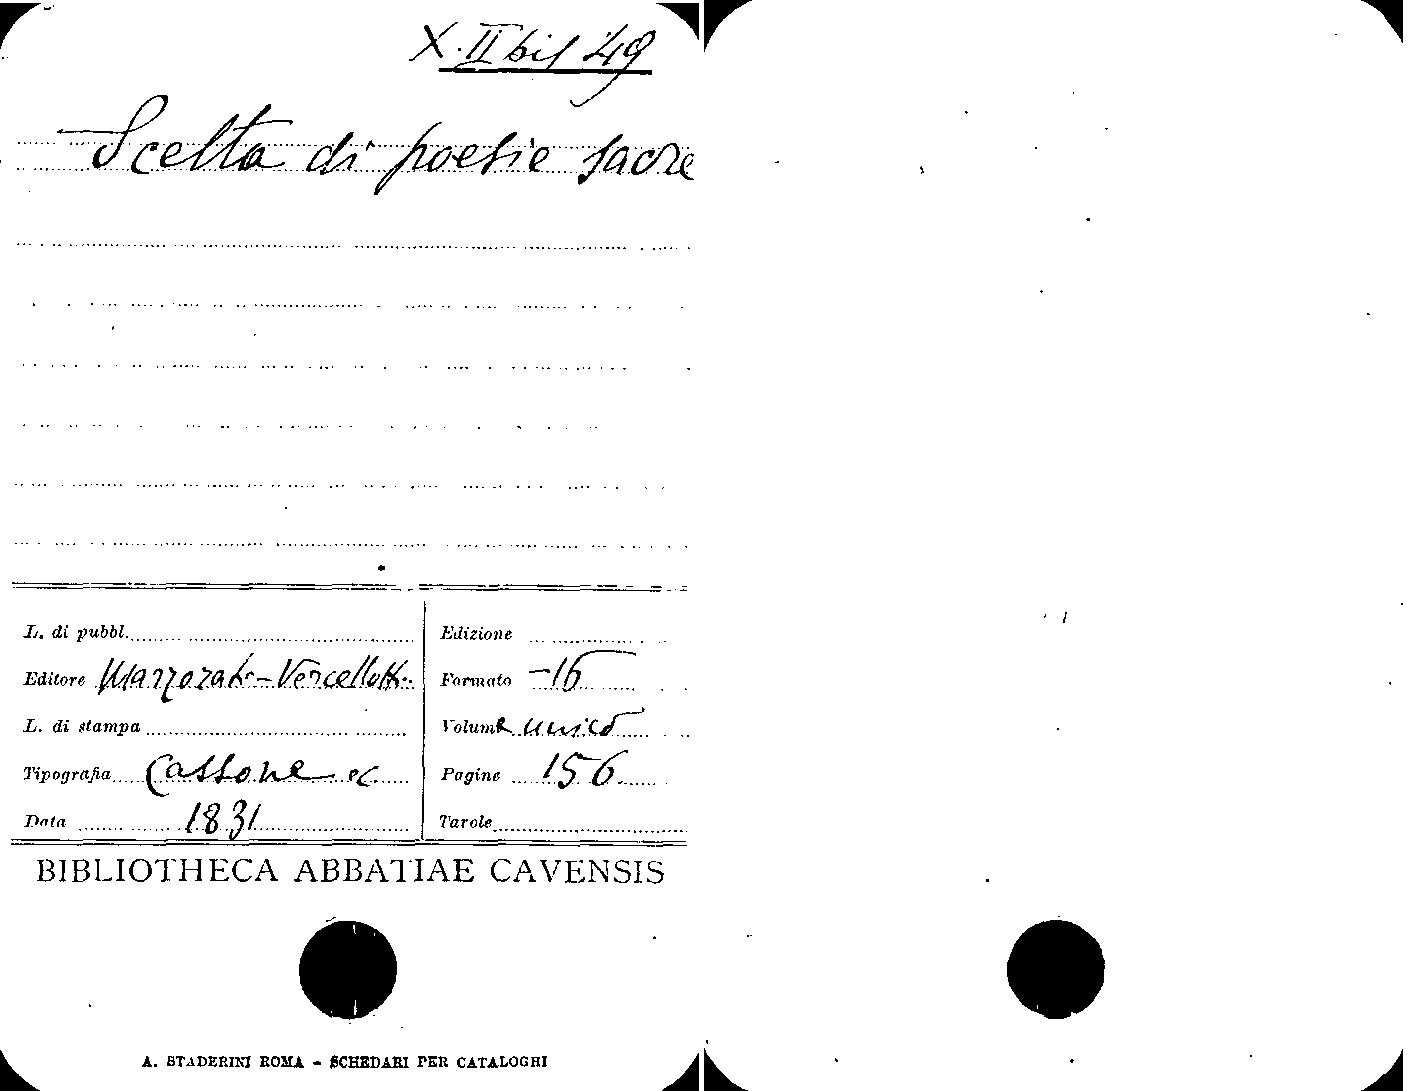 X. II bis 49
Scelta di poesie sacre
L. di pubbl.
Editore Marzorati - Vercellotti
L. di stampa
Tipografia Cassone ec
Data 1831
Edizione
Formato -16
Volume unico
Pagine 156
Tavole
BIBLIOTHECA ABBATIAE CAVENSIS
A. STADERINI ROMA - SCHEDARI PER CATALOGHI